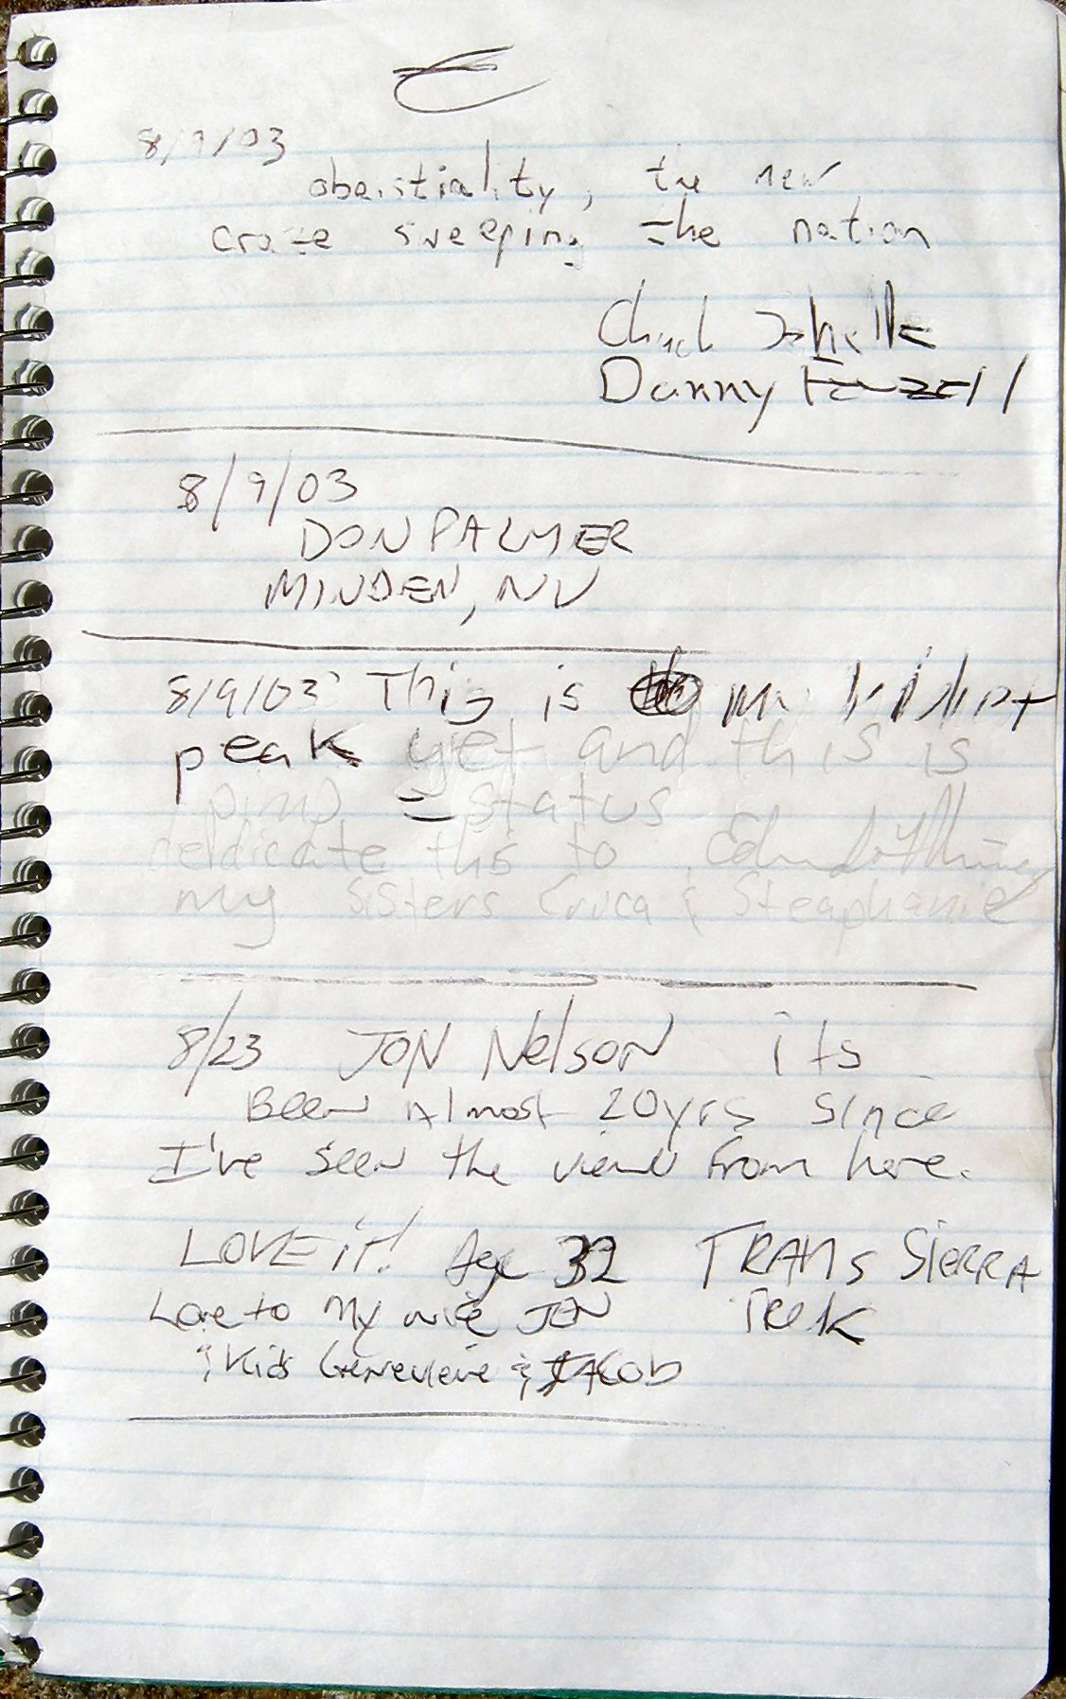 8/9/03
obeistiality, the new
craze sweeping the nation
Danny
8/9/03
DON PALMER
MINDEN, NV
8/9/03 This is my highest
peak yet and this is
= status
deldicate this to
my sisters Erica & Steaphanie
8/23 JON Nelson its
Been Almost 20yrs since
I've seen the view from here.
LOVE it! Age 32 TRANS SIERRA
Love to My wife JEN TREK
& Kids Genevieve & JACOB